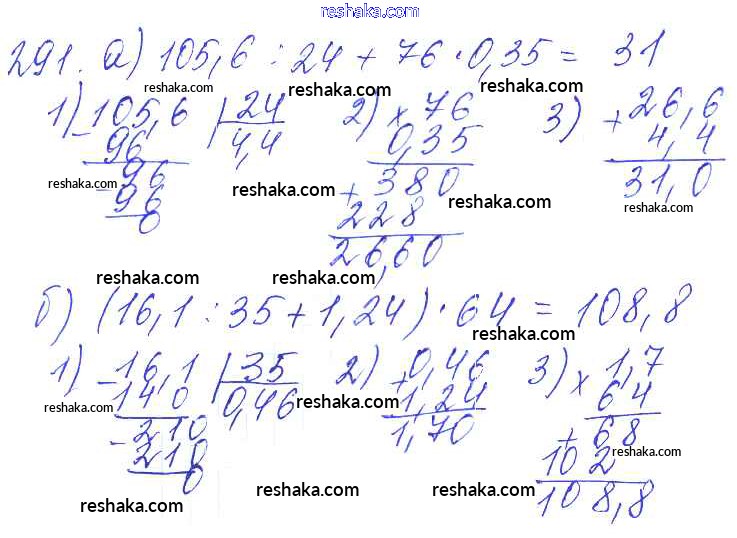 reshaka.com
291. а) 105,6 : 24 + 76 · 0,35 = 31
reshaka.com reshaka.com reshaka.com
1) - 105,6 | 24 2) × 76 3) + 26,6
96 4,4 0,35 4,4
- 96 + 380 31,0
reshaka.com reshaka.com reshaka.com reshaka.com
96 228
0 26,60
reshaka.com reshaka.com
б) (16,1 : 35 + 1,24) · 64 = 108,8
reshaka.com
1) - 16,1 | 35 2) + 0,46 3) × 1,7
140 0,46 1,24 64
reshaka.com reshaka.com
- 210 1,70 + 68
210 102
reshaka.com
0 108,8
reshaka.com reshaka.com reshaka.com